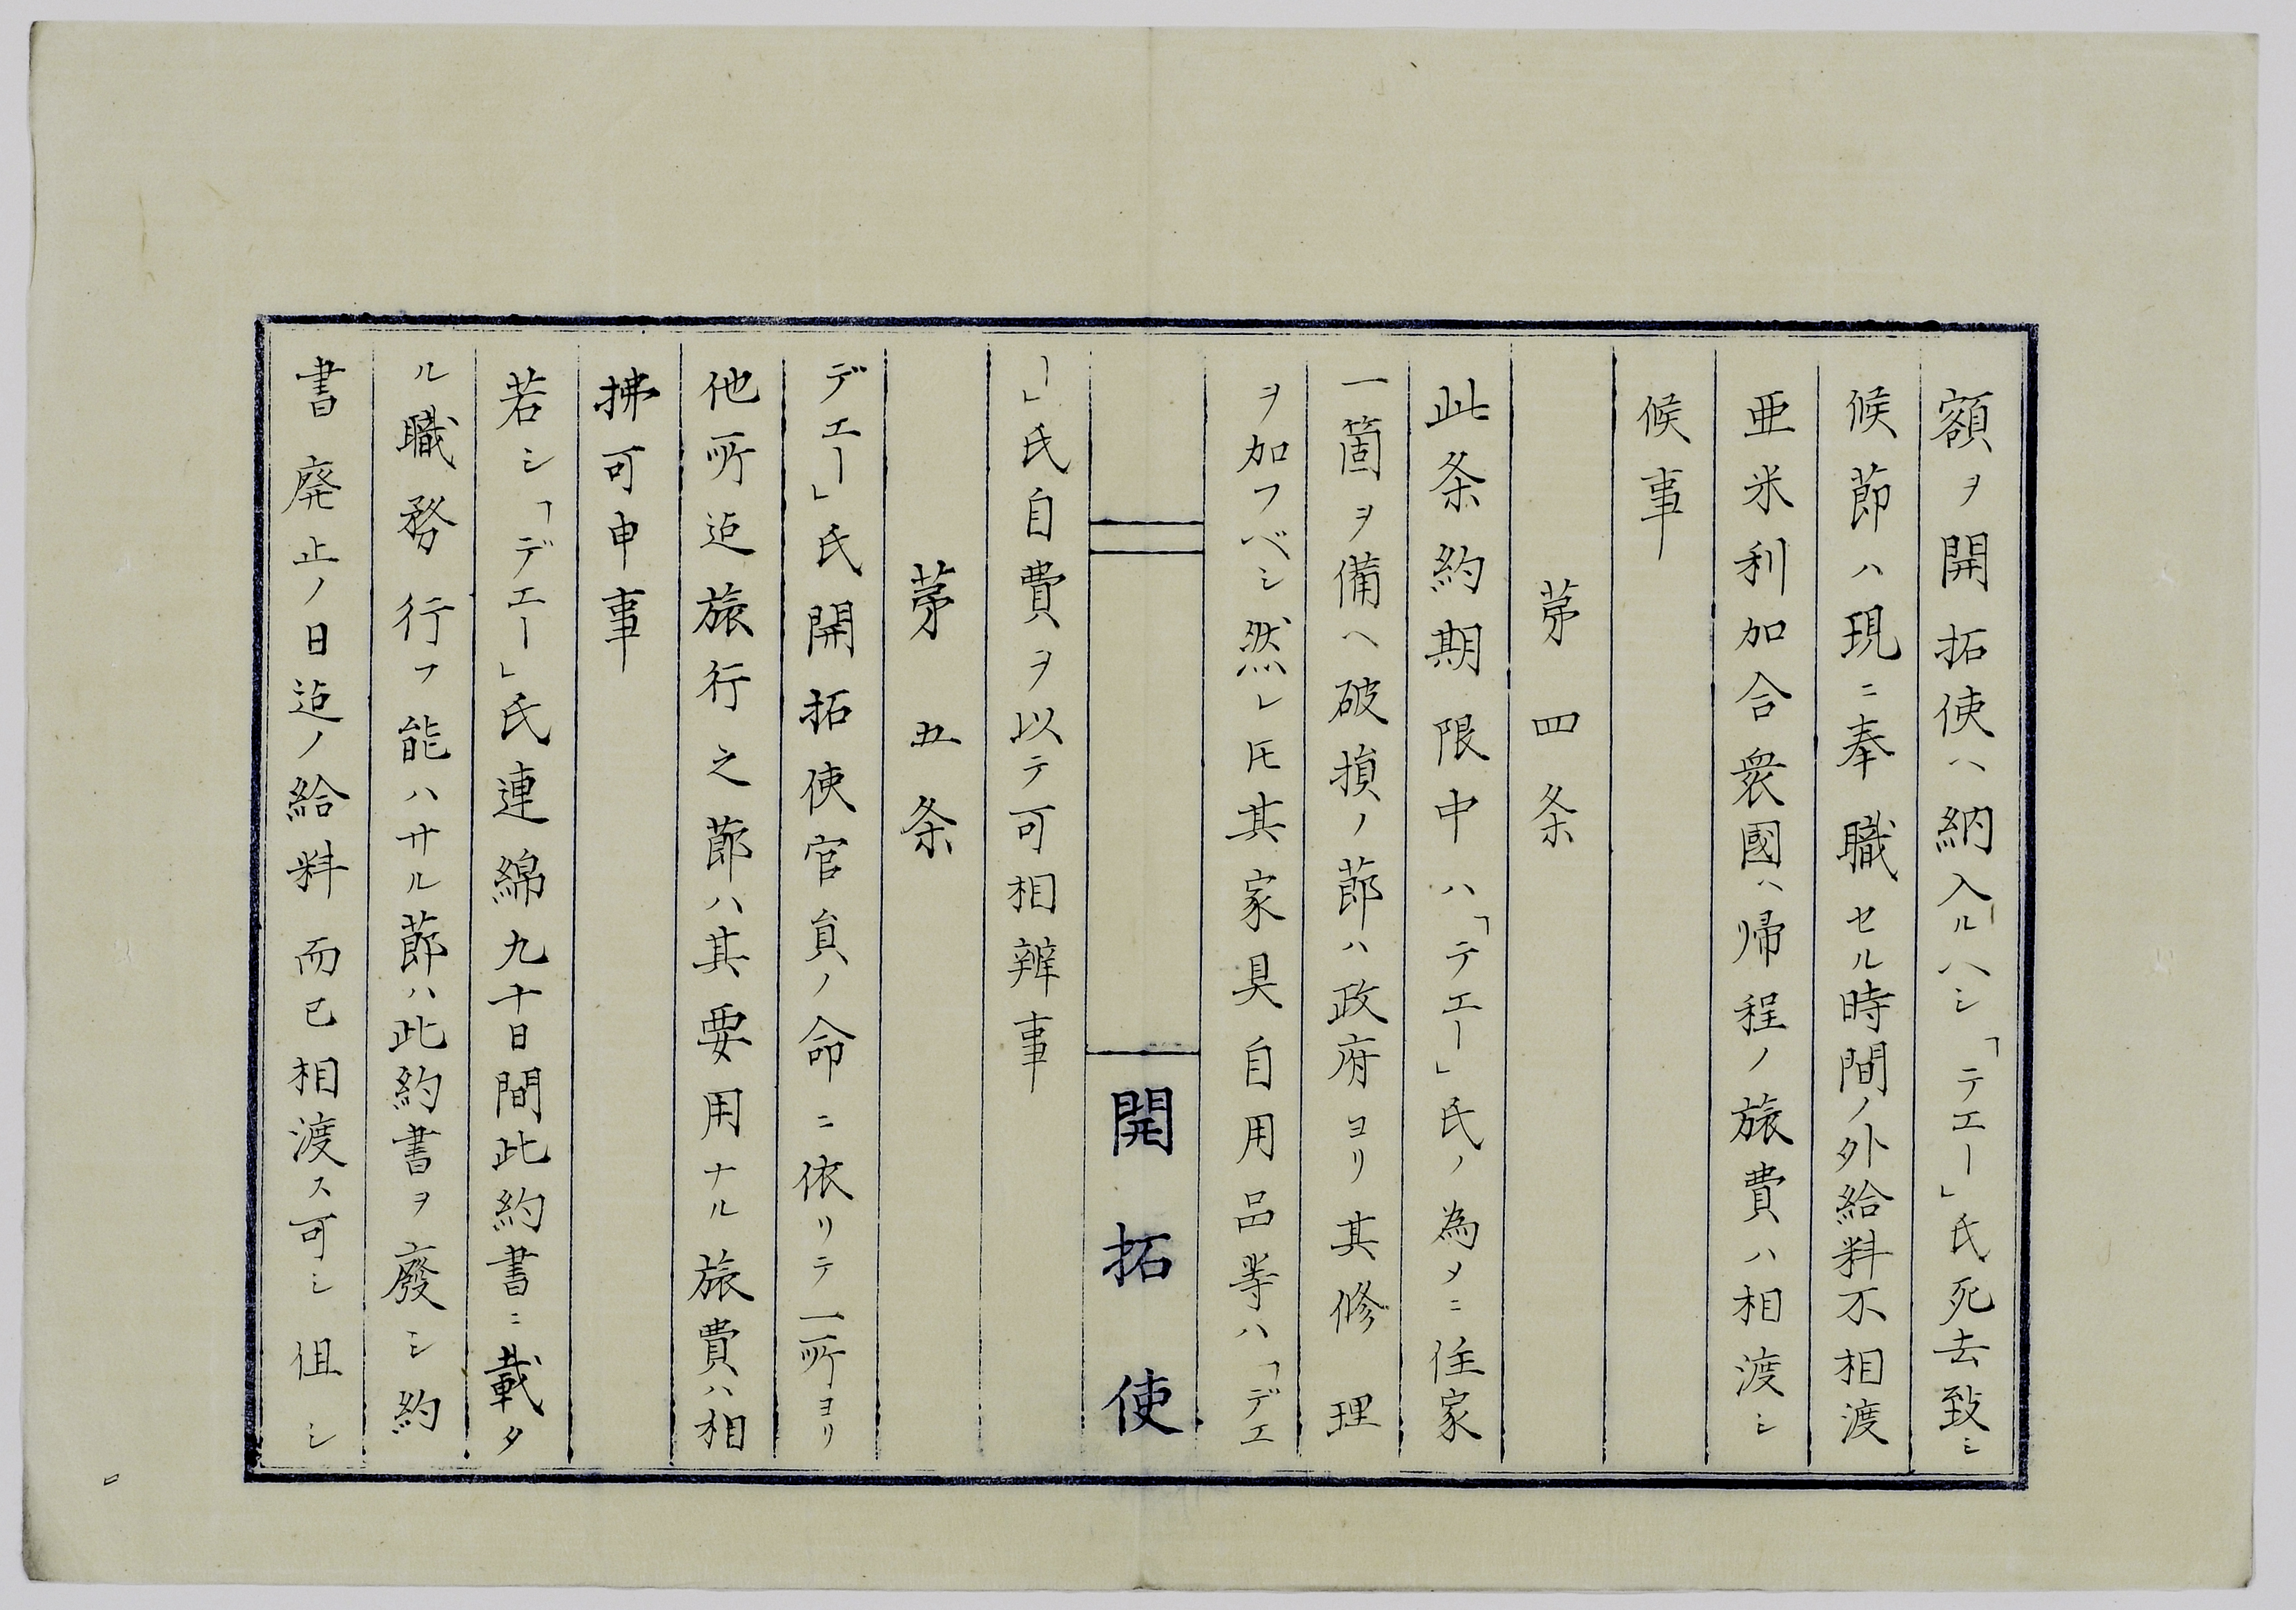 額ヲ開拓使ヘ納入ルヘシ「テエー」氏死去致シ
候節ハ現ニ奉職セル時間ノ外給料不相渡
亜米利加合衆國ヘ帰程ノ旅費ハ相渡シ
候事
苐四条
此条約期限中ハ「テエー」氏ノ為メニ住家
一箇ヲ備ヘ破損ノ節ハ政府ヨリ其修理
ヲ加フベシ然レ𪜈其家具自用品等ハ「デエ
ー」氏自費ヲ以テ可相辨事
開拓使
苐五条
デエー」氏開拓使官員ノ命ニ依リテ一所ヨリ
他所迠旅行之節ハ其要用ナル旅費ハ相
拂可申事
若シ「デエー」氏連綿九十日間此約書ニ載タ
ル職務行フ能ハサル節ハ此約書ヲ廢シ約
書廃止ノ日迠ノ給料而已相渡ス可シ但シ